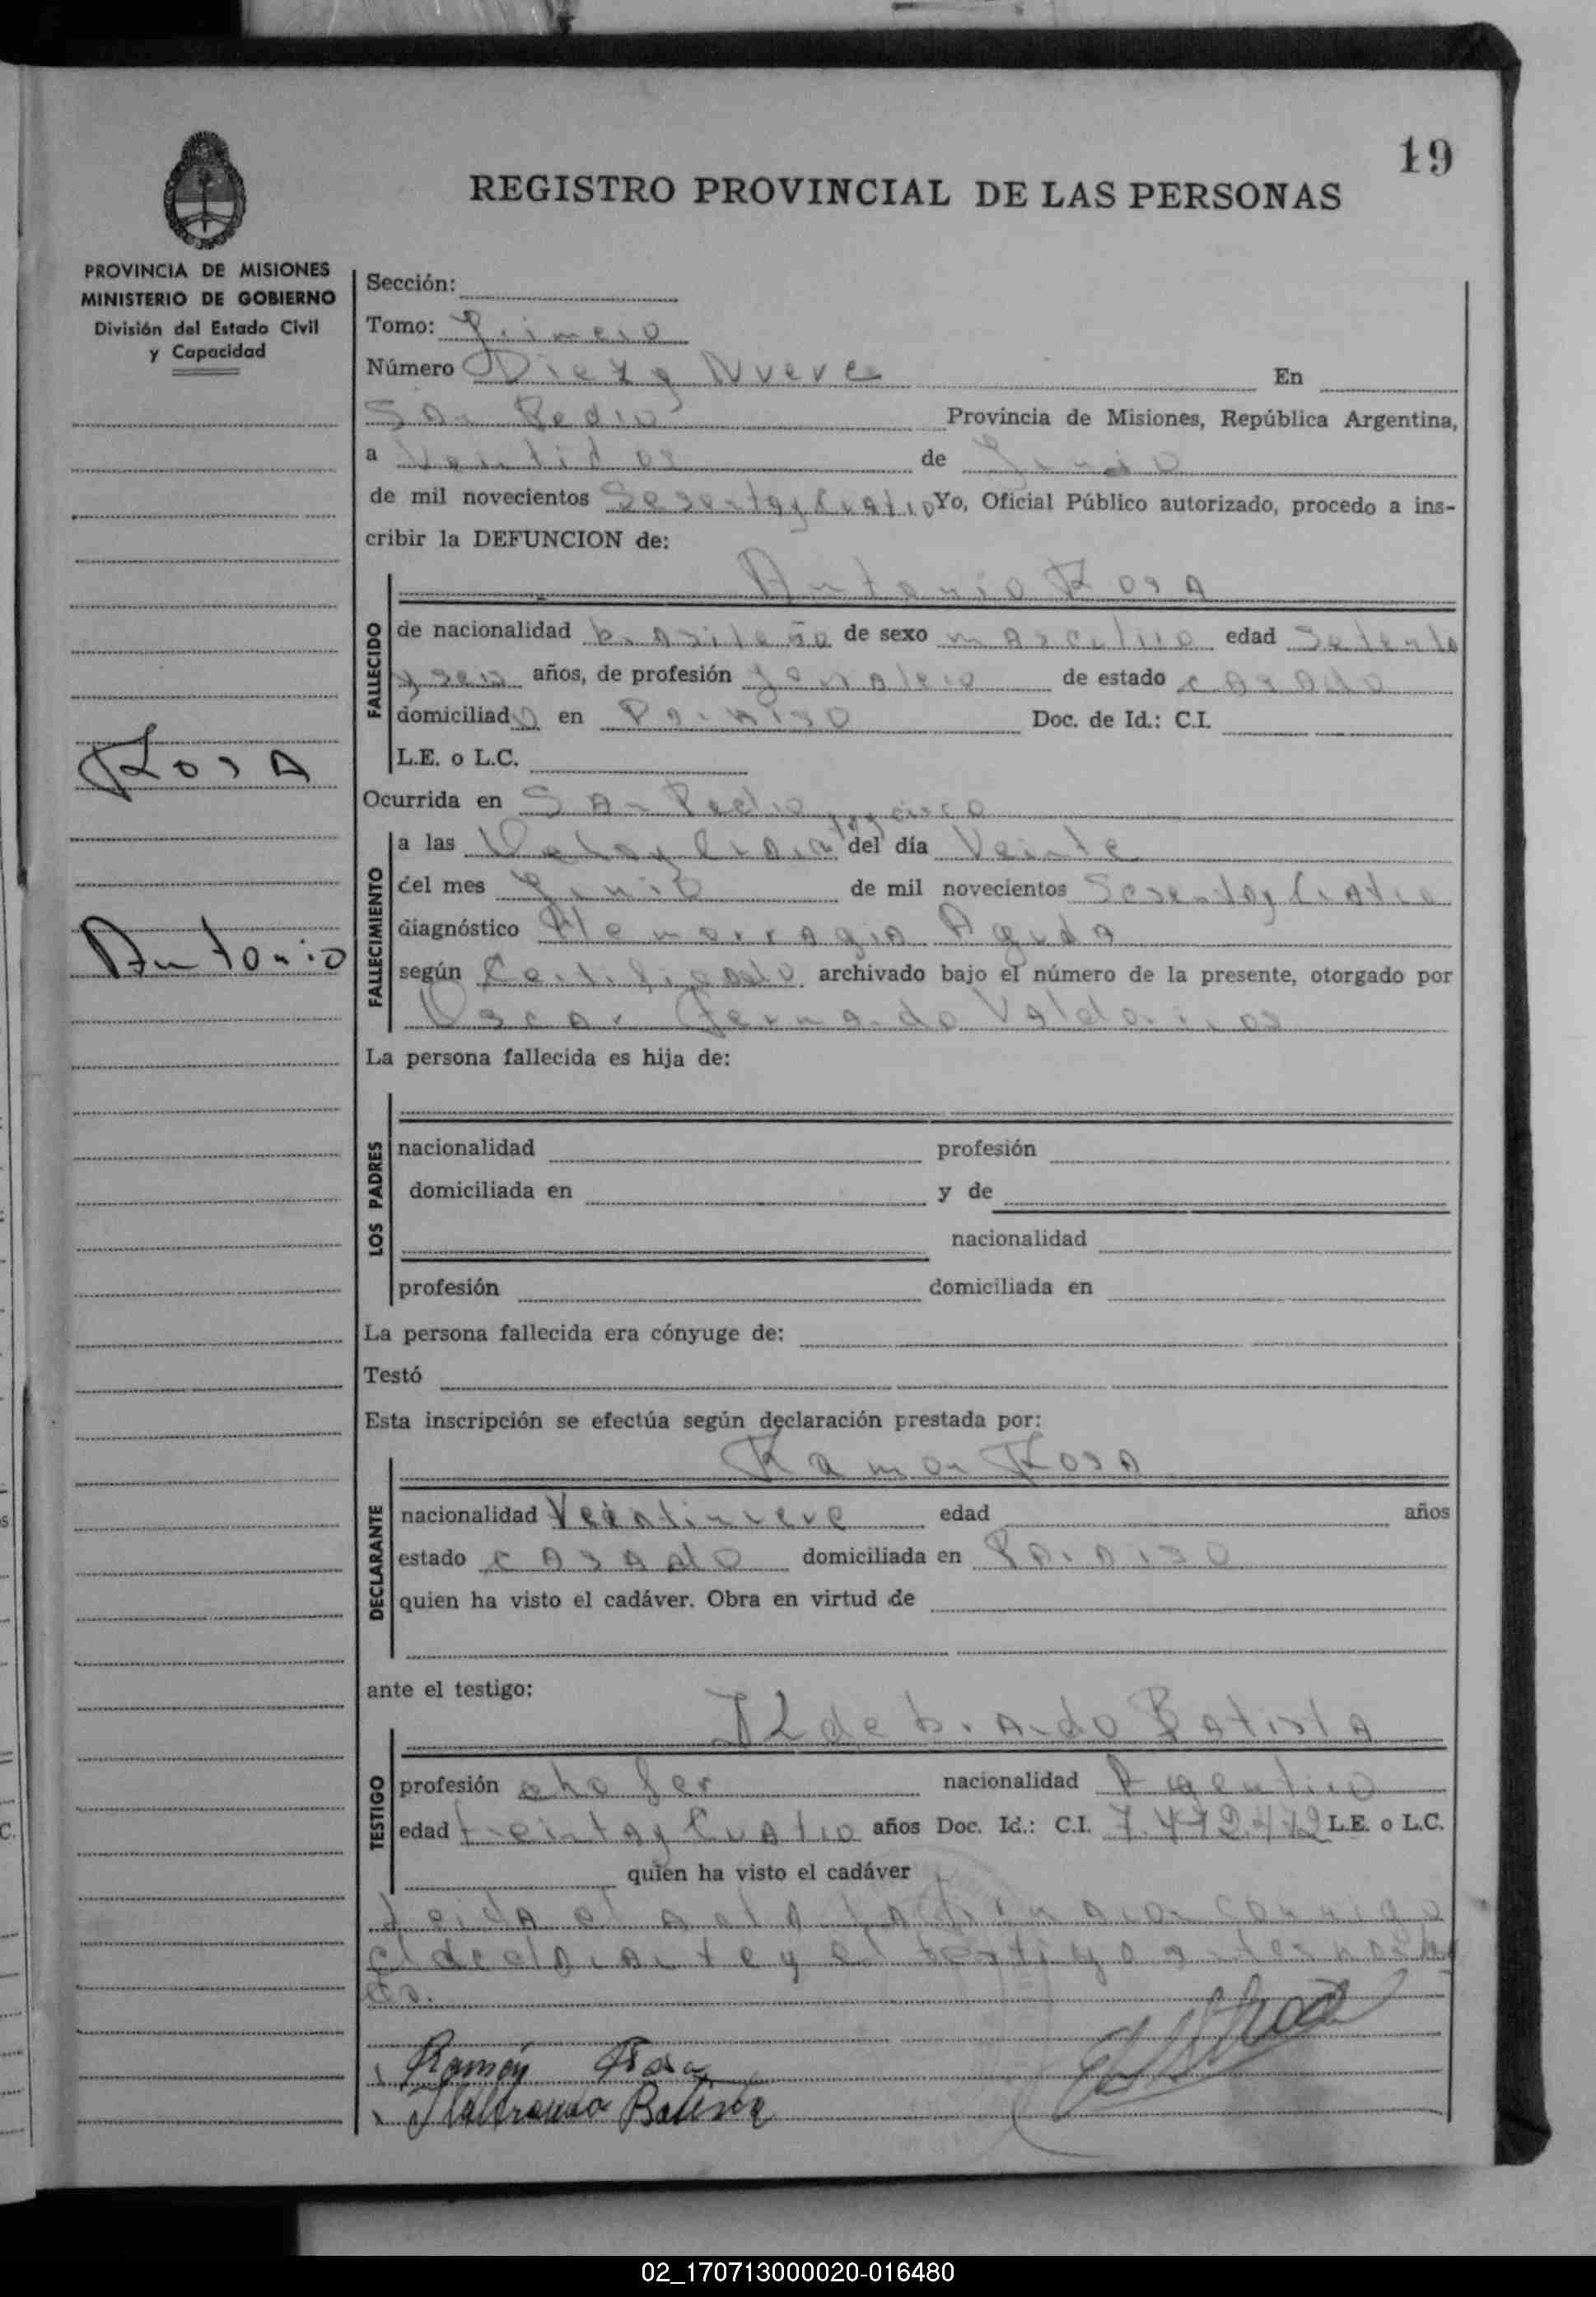 19
REGISTRO PROVINCIAL DE LAS PERSONAS
PROVINCIA DE MISIONES
MINISTERIO DE GOBIERNO
División del Estado Civil
y Capacidad
Sección:
Tomo: Primero
Número Diez y Nueve En
San Pedro Provincia de Misiones, República Argentina,
a Veintidos de Junio
de mil novecientos Sesentay Cuatro Yo, Oficial Público autorizado, procedo a ins-
cribir la DEFUNCION de:
Antonio Rosa
FALLECIDO
de nacionalidad brasileño de sexo masculino edad Setenta
y seis años, de profesión jornalero de estado casado
domiciliado en Paraiso Doc. de Id.: C.I.
L.E. o L.C.
Rosa
Antonio
Ocurrida en San Pedro
FALLECIMIENTO
a las del día Veinte
del mes Junio de mil novecientos Sesentay Cuatro
diagnóstico Hemorragia Aguda
según Certificado archivado bajo el número de la presente, otorgado por
Oscar Fernando
La persona fallecida es hija de:
LOS PADRES
nacionalidad profesión
domiciliada en y de
nacionalidad
profesión domiciliada en
La persona fallecida era cónyuge de:
Testó
Esta inscripción se efectúa según declaración prestada por:
Ramon Rosa
DECLARANTE
nacionalidad Veintinueve edad años
estado casado domiciliada en Paraiso
quien ha visto el cadáver. Obra en virtud de
ante el testigo:
Ildebrando Batista
TESTIGO
profesión chofer nacionalidad Argentino
edad treintay Cuatro años Doc. Id.: C.I. 7.472.472 L.E. o L.C.
quien ha visto el cadáver
Leida el acta conmigo
el declarante y el testigo
Ramón Rosa
Batista
02_170713000020-016480